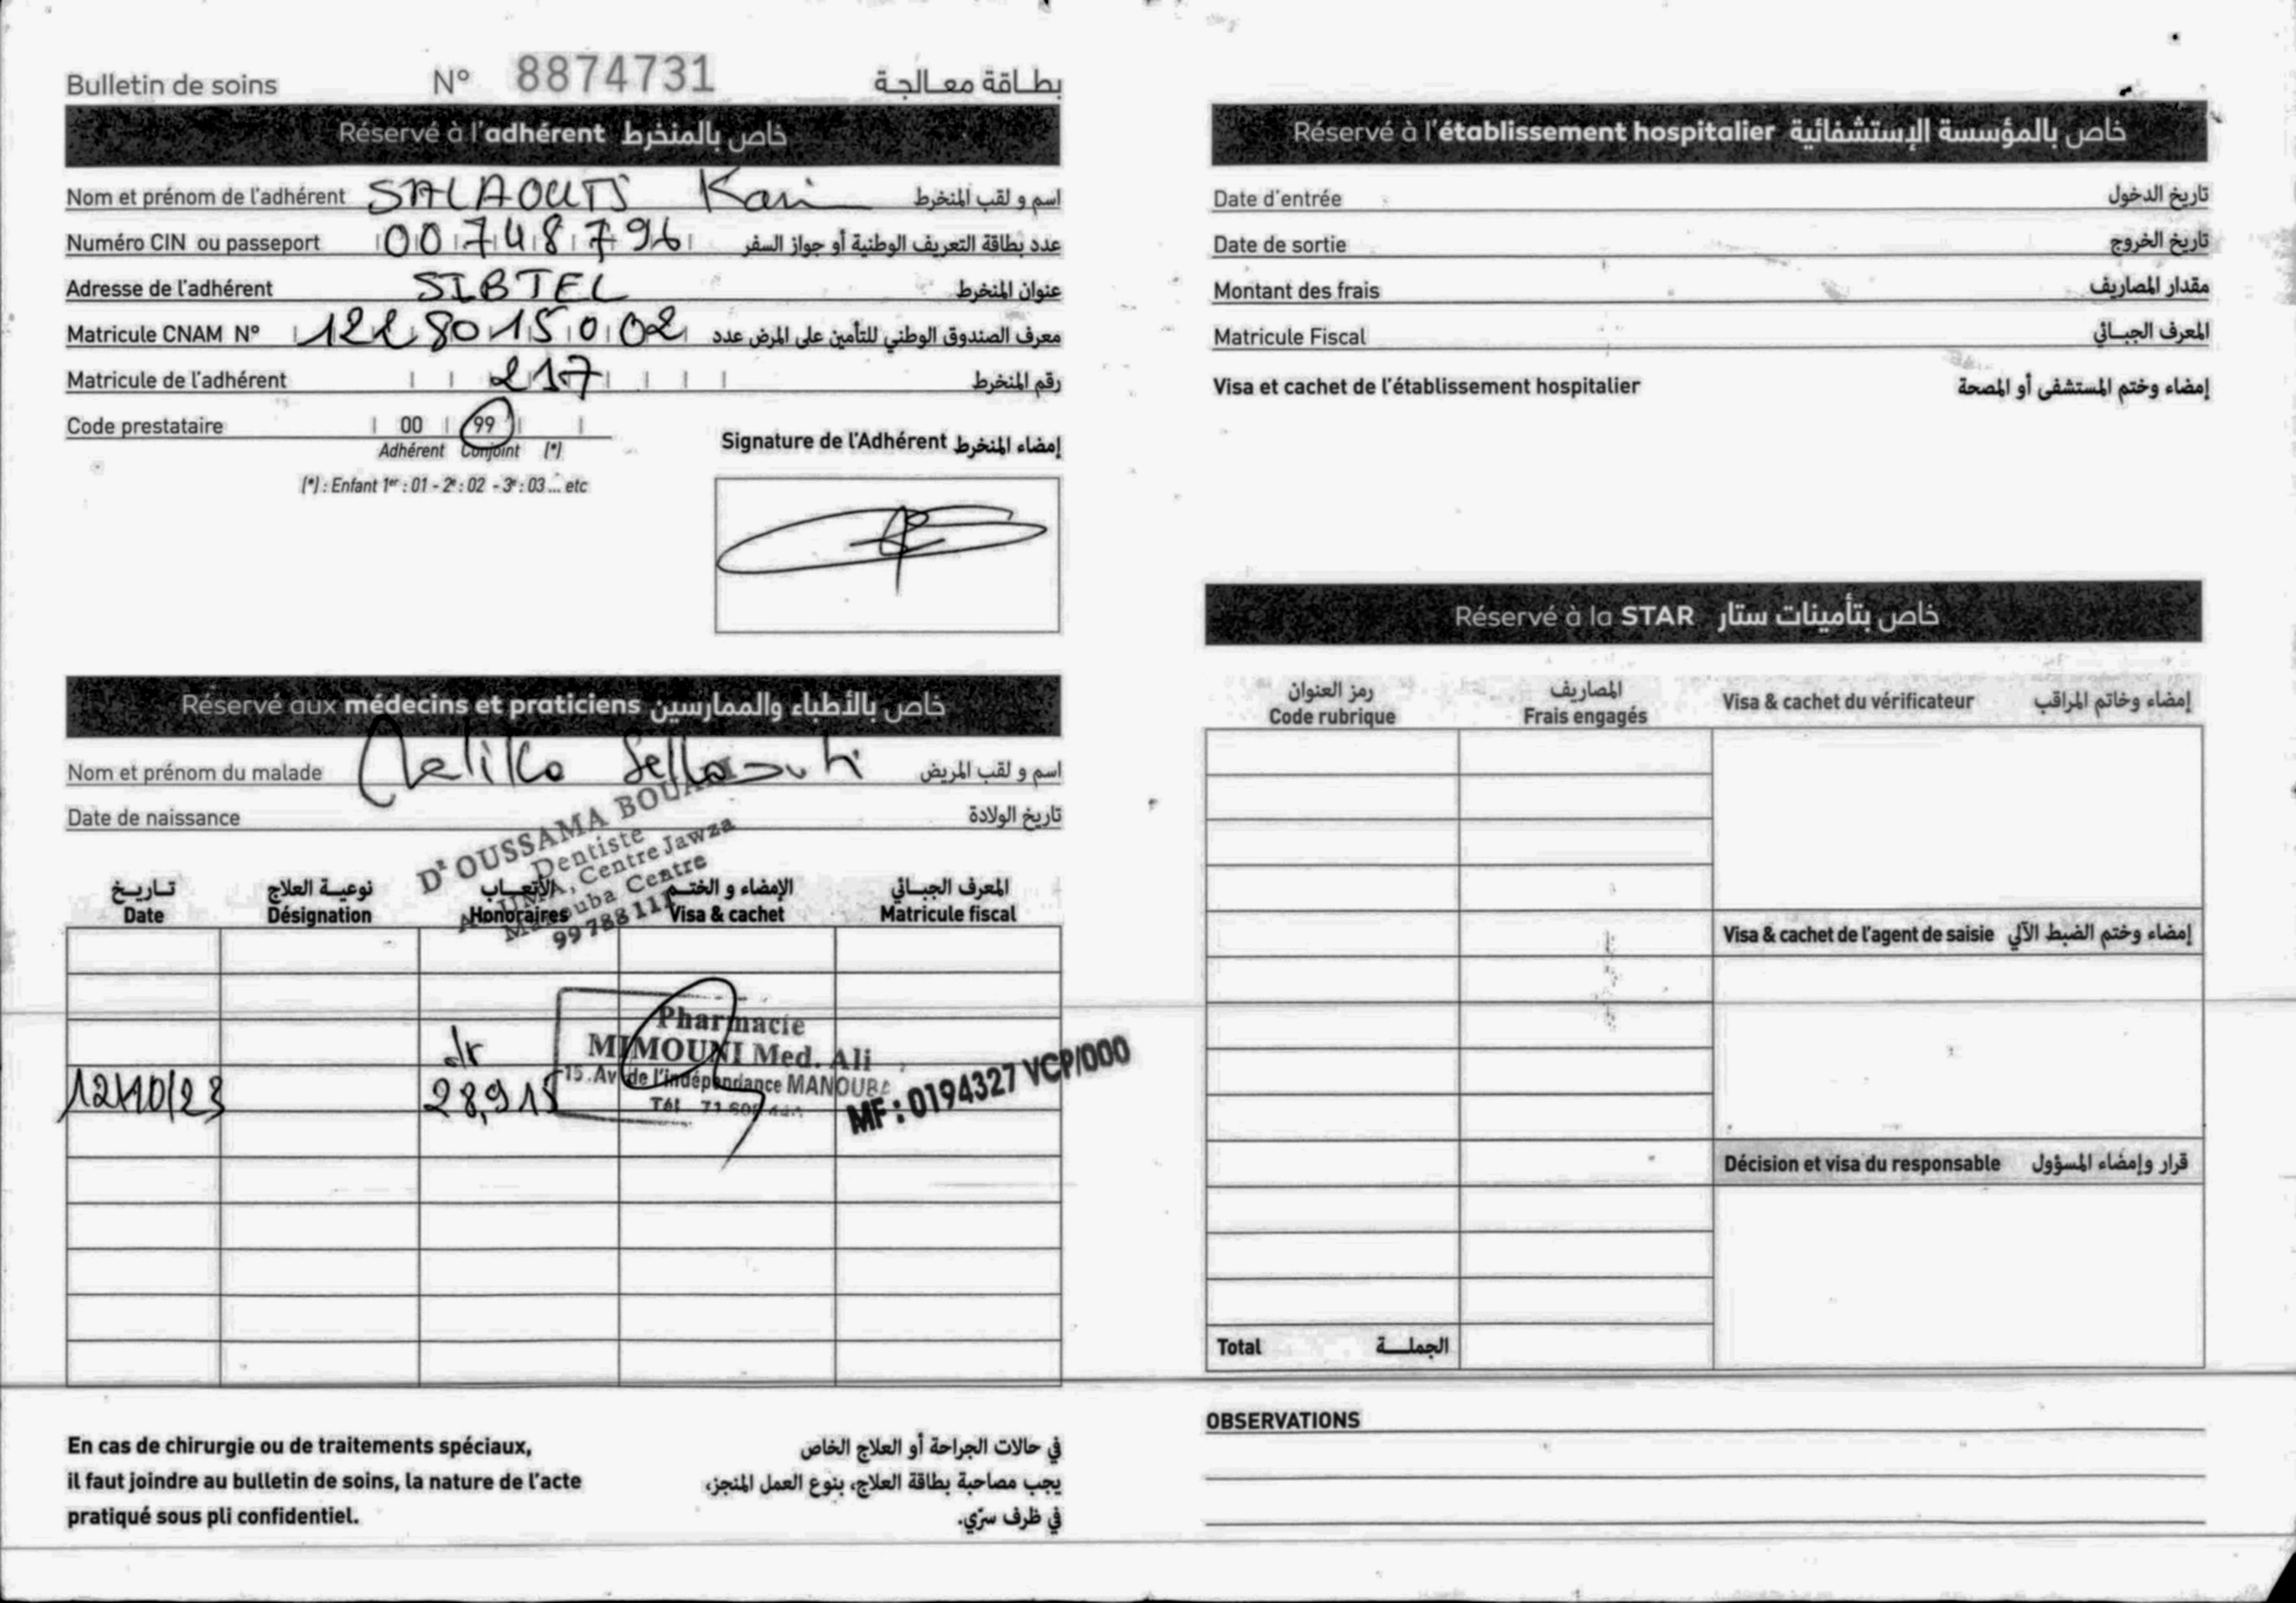 Bulletin de soins N° 8874731 بطاقة معالجة
Réservé à l'adhérent خاص بالمنخرط
Nom et prénom de l'adhérent SALAOUTI اسم و لقب المنخرط
Numéro CIN ou passeport 00748796 عدد بطاقة التعريف الوطنية أو جواز السفر
Adresse de l'adhérent SIBTEL عنوان المنخرط
Matricule CNAM N° 1228015002 معرف الصندوق الوطني للتأمين على المرض عدد
Matricule de l'adhérent 217 رقم المنخرط
Code prestataire 00 99
Adhérent Conjoint (*)
(*) : Enfant 1er : 01 - 2e : 02 - 3e : 03 ... etc
Signature de l'Adhérent إمضاء المنخرط
Réservé aux médecins et praticiens خاص بالأطباء والممارسين
Nom et prénom du malade اسم و لقب المريض
Date de naissance تاريخ الولادة
Dr OUSSAMA
Dentiste
Centre Jawza
Centre
99 788 111
تاريخ نوعية العلاج الأتعاب الإمضاء و الختم المعرف الجبائي
Date Désignation Honoraires Visa & cachet Matricule fiscal
Pharmacie
MIMOUNI Med. Ali
15. Av. de l'indépendance MANOUBA
12/10/23 28,915
MF : 0194327 VCP/000
En cas de chirurgie ou de traitements spéciaux,
il faut joindre au bulletin de soins, la nature de l'acte
pratiqué sous pli confidentiel.
في حالات الجراحة أو العلاج الخاص
يجب مصاحبة بطاقة العلاج، بنوع العمل المنجز،
في ظرف سرّي.
Réservé à l'établissement hospitalier خاص بالمؤسسة الإستشفائية
Date d'entrée تاريخ الدخول
Date de sortie تاريخ الخروج
Montant des frais مقدار المصاريف
Matricule Fiscal المعرف الجبائي
Visa et cachet de l'établissement hospitalier إمضاء وختم المستشفى أو المصحة
Réservé à la STAR خاص بتأمينات ستار
رمز العنوان المصاريف
Code rubrique Frais engagés Visa & cachet du vérificateur إمضاء وخاتم المراقب
Visa & cachet de l'agent de saisie إمضاء وختم الضبط الآلي
Décision et visa du responsable قرار وإمضاء المسؤول
Total الجملة
OBSERVATIONS